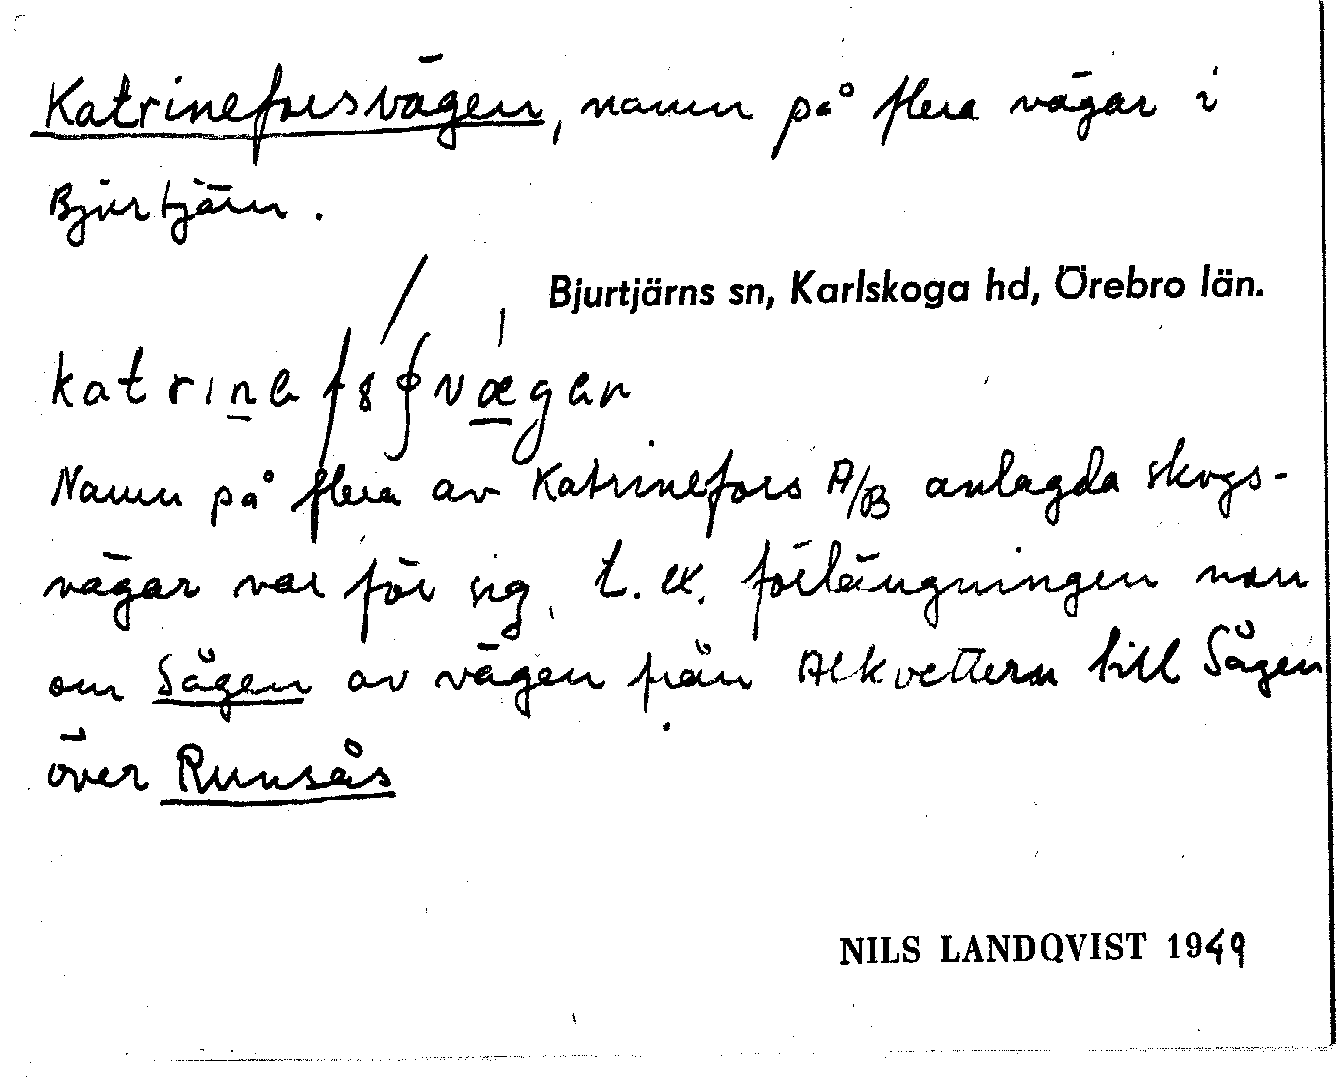 Katrineforsvägen, namn på flera vägar i
Bjurtjärn.
Bjurtjärns sn, Karlskoga hd, Örebro län.
Namn på flera av Katrinefors A/B anlagda skogs-
vägar var för sig, t. ex. förlängningen norr
om Sågen av vägen från Alkvettern till Sågen
över Runsås
NILS LANDQVIST 1949